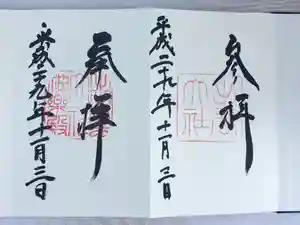 参拝
平成二十九年十一月三日
大社
奉拝
平成二十九年十一月三日
神楽殿